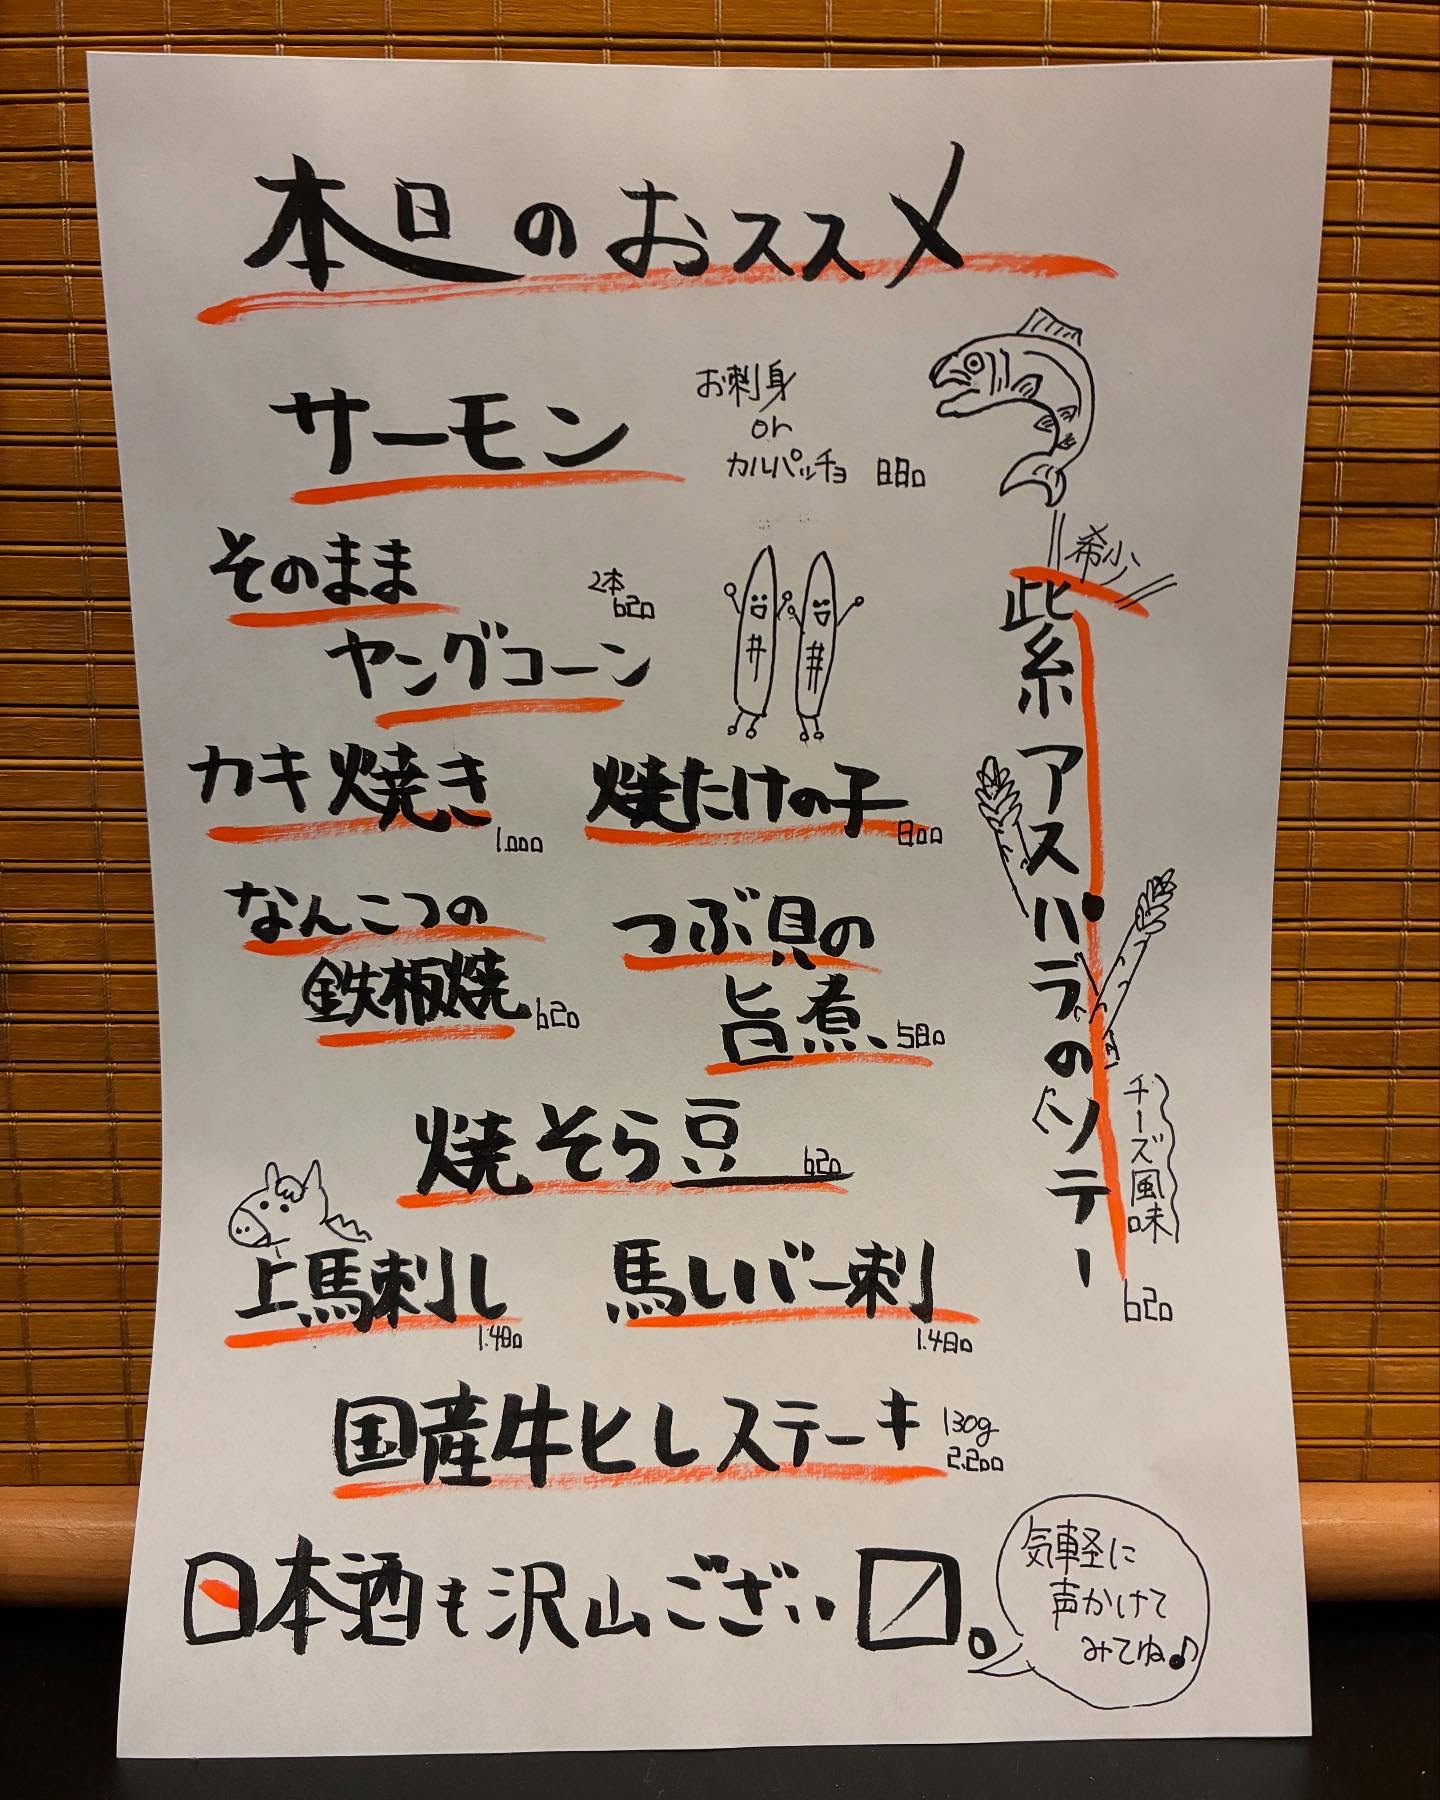 本日のおススメ
サーモン
お刺身
or
カルパッチョ 880
そのまま
ヤングコーン
2本
620
カキ焼き
1.000
焼たけの子
800
なんこつの
鉄板焼
620
つぶ貝の
旨煮
580
焼そら豆
620
上馬刺し
1.480
馬レバー刺
1.480
国産牛ヒレステーキ
130g
2.200
希少
紫アスパラのソテー
チーズ風味
620
日本酒も沢山ござい〼。
気軽に
声かけて
みてね♪